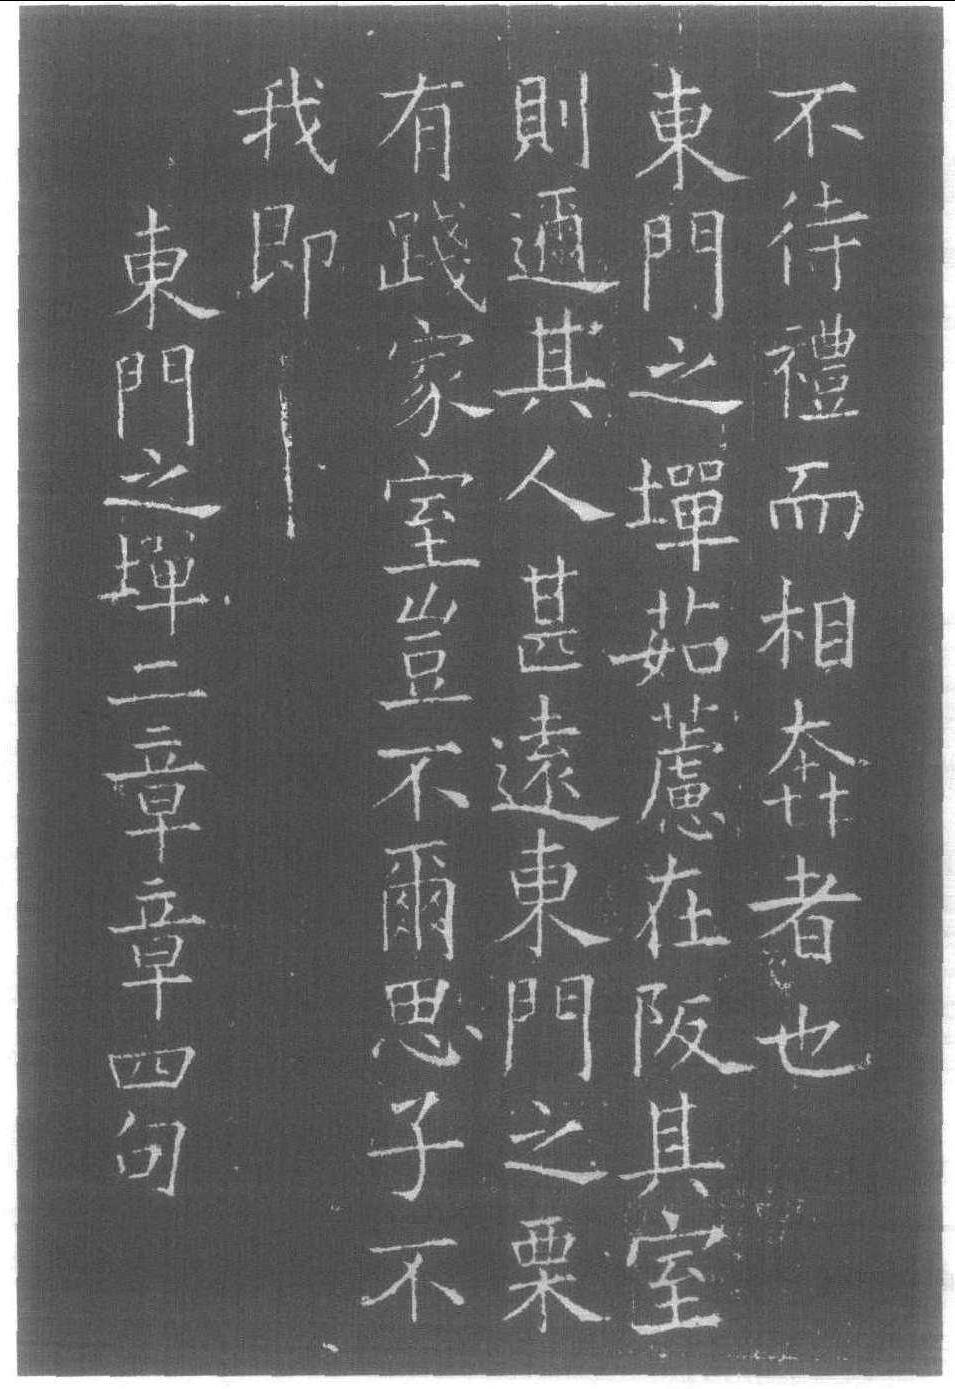 不待禮而相奔者也
東門之墠茹藘在阪其室
則邇其人甚遠東門之栗
有踐家室豈不爾思子不
我即
東門之墠二章章四句